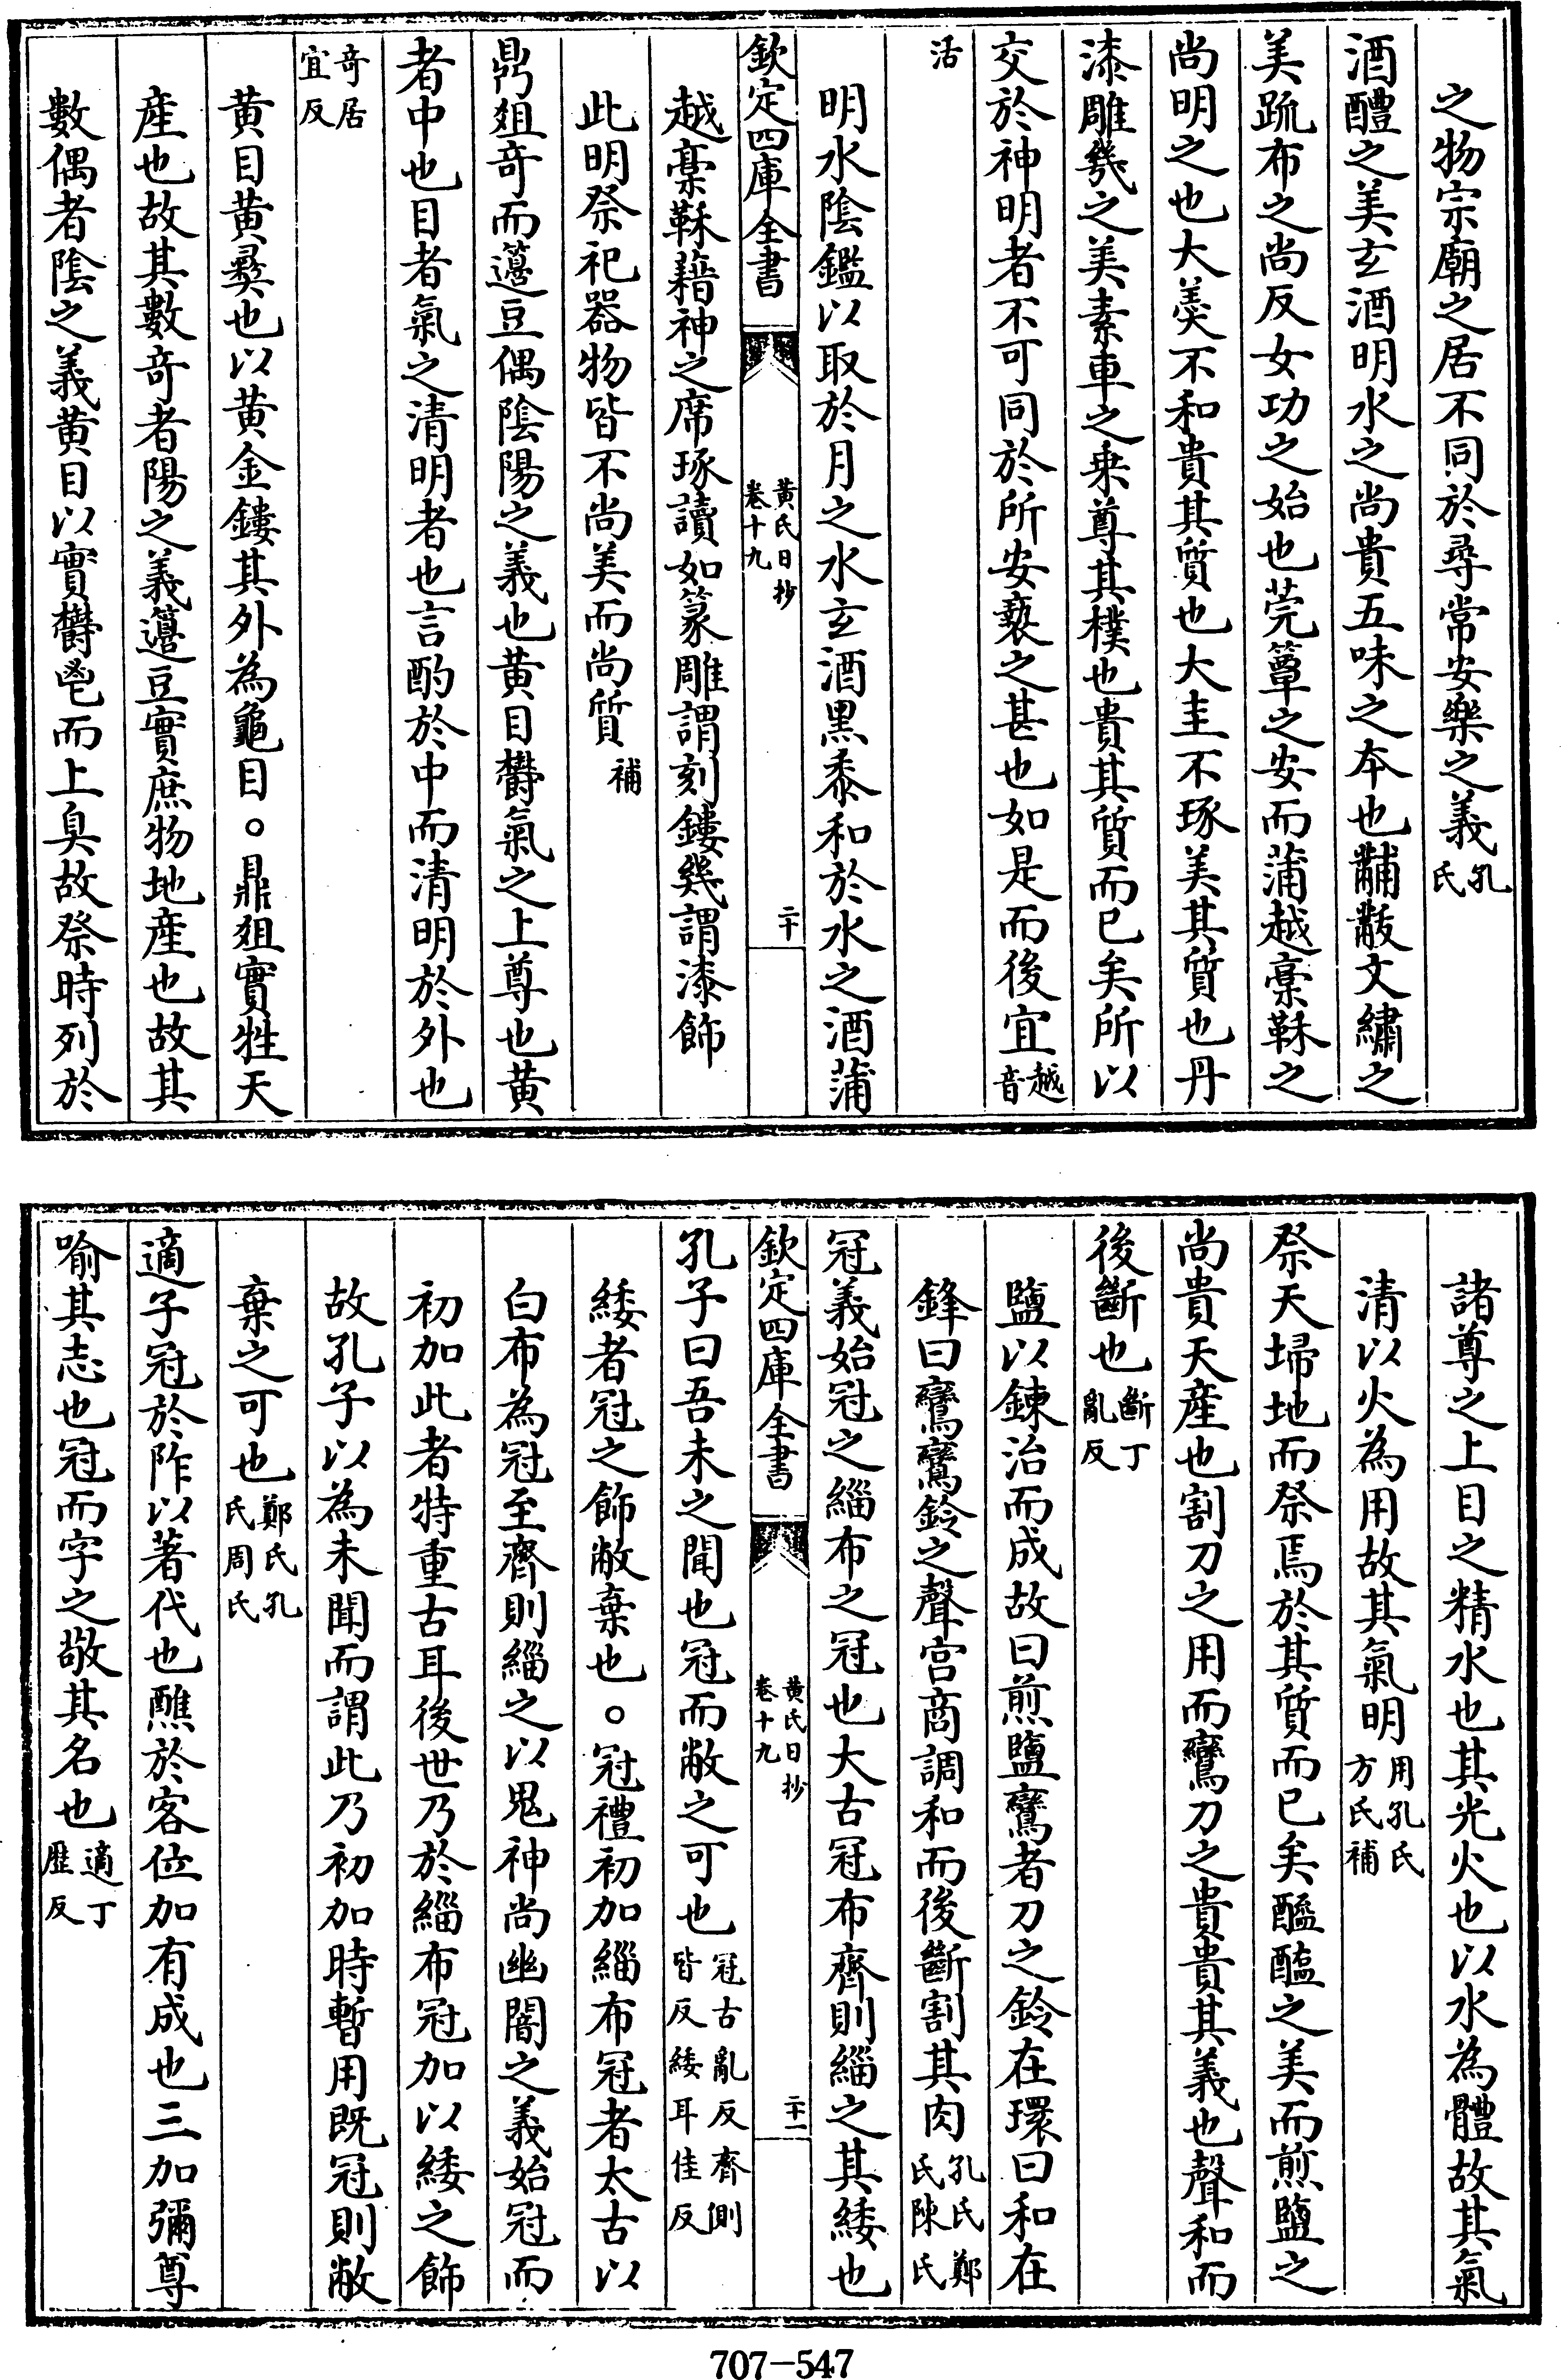 之物宗廟之居不同於尋常安樂之義孔氏
酒醴之美玄酒明水之尚貴五味之本也黼黻文繡之
美疏布之尚反女功之始也莞簟之安而蒲越稾鞂之
尚明之也大羹不和貴其質也大圭不琢美其質也丹
漆雕幾之美素車之乘尊其樸也貴其質而已矣所以
交於神明者不可同於所安褻之甚也如是而後宜越音
活
明水陰鑑以取於月之水玄酒黑黍和於水之酒蒲
欽定四庫全書 黄氏日抄 卷十九 二十
越稾鞂藉神之席琢讀如篆雕謂刻鏤幾謂漆飾
此明祭祀器物皆不尚美而尚質補
鼎俎竒而籩豆偶陰陽之義也黄目欝氣之上尊也黄
者中也目者氣之清明者也言酌於中而清明於外也
竒居宜反
黄目黄彛也以黄金鏤其外為龜目。鼎俎實牲天
産也故其數竒者陽之義籩豆實庶物地産也故其
數偶者陰之義黄目以實欝鬯而上臭故祭時列於
諸尊之上目之精水也其光火也以水為體故其氣
清以火為用故其氣明用孔氏方氏補
祭天埽地而祭焉於其質而已矣醯醢之美而煎鹽之
尚貴天産也割刀之用而鸞刀之貴貴其義也聲和而
後斷也斷丁亂反
鹽以鍊治而成故曰煎鹽鸞者刀之鈴在環曰和在
鋒曰鸞鸞鈴之聲宫商調和而後斷割其肉孔氏鄭氏陳氏
冠義始冠之緇布之冠也大古冠布齊則緇之其緌也
欽定四庫全書 黄氏日抄 卷十九 二十一
孔子曰吾未之聞也冠而敝之可也冠古亂反齊側皆反緌耳佳反
緌者冠之飾敝棄也。冠禮初加緇布冠者太古以
白布為冠至齊則緇之以鬼神尚幽闇之義始冠而
初加此者特重古耳後世乃於緇布冠加以緌之飾
故孔子以為未聞而謂此乃初加時暫用既冠則敝
棄之可也鄭氏孔氏周氏
適子冠於阼以著代也醮於客位加有成也三加彌尊
喻其志也冠而字之敬其名也適丁歴反
707-547